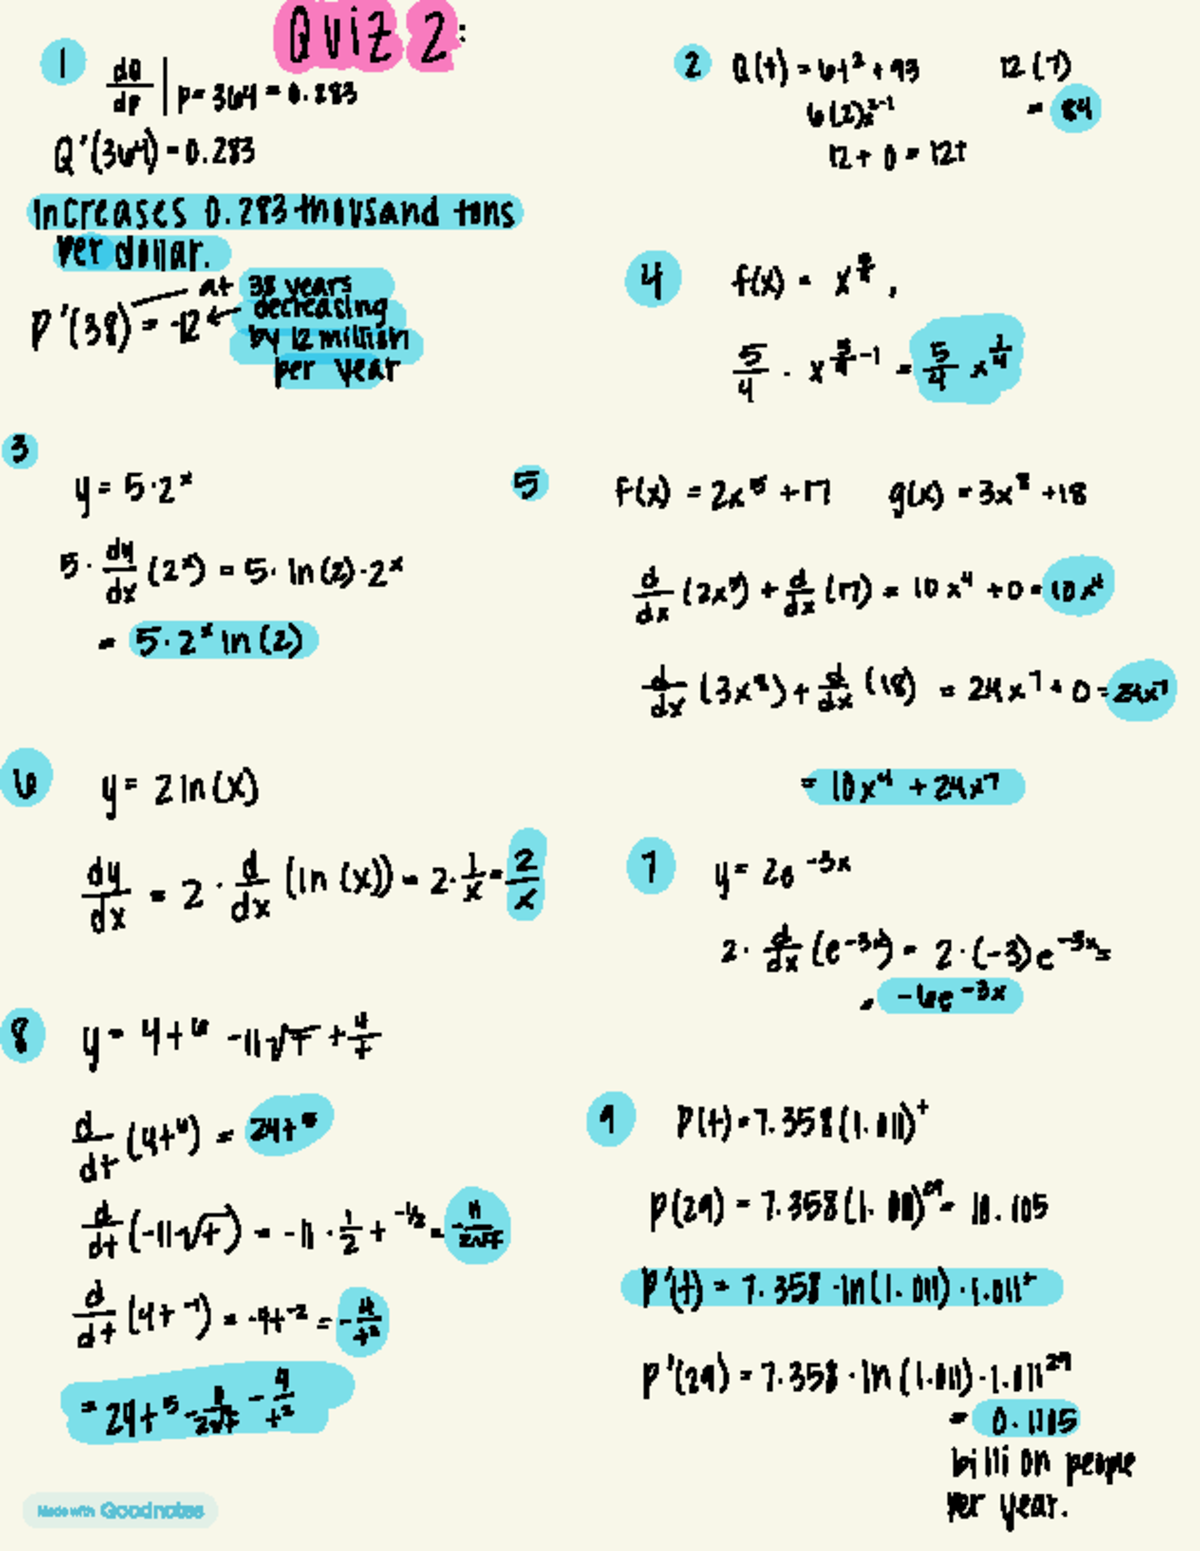 QUIZ 2:
1
dQ/dP | P = 364 = 0.283
Q'(364) = 0.283
increases 0.283 thousand tons
per dollar.
P'(38) = -12
at 38 years
decreasing
by 12 million
per year
2 Q(t) = 6t² + 93
6(2)x²⁻¹
12t 0 = 12t
12(7)
= 84
3
y = 5·2ˣ
5 · dy/dx (2ˣ) = 5 · ln(2) · 2ˣ
= 5·2ˣ ln(2)
4 f(x) = x^(5/4),
5/4 · x^(5/4 - 1) = 5/4 x^(1/4)
5 f(x) = 2x⁵ + 17 g(x) = 3x⁸ + 18
d/dx (2x⁵) + d/dx (17) = 10x⁴ + 0 = 10x⁴
d/dx (3x⁸) + d/dx (18) = 24x⁷ + 0 = 24x⁷
= 10x⁴ + 24x⁷
6 y = 2 ln(x)
dy/dx = 2 · d/dx (ln(x)) = 2 · 1/x = 2/x
7 y = 2e⁻³ˣ
2 · d/dx (e⁻³ˣ) = 2 · (-3)e⁻³ˣ =
= -6e⁻³ˣ
8 y = 4t⁶ - 11√t + 4/t
d/dt (4t⁶) = 24t⁵
d/dt (-11√t) = -11 · 1/2 t^(-1/2) = -11/(2√t)
d/dt (4t⁻¹) = -4t⁻² = -4/t²
= 24t⁵ - 11/(2√t) - 4/t²
9 P(t) = 7.358(1.011)ᵗ
P(29) = 7.358(1.011)²⁹ = 10.105
P'(t) = 7.358 · ln(1.011) · 1.011ᵗ
P'(29) = 7.358 · ln(1.011) · 1.011²⁹
= 0.1105
billion people
per year.
Made with Goodnotes